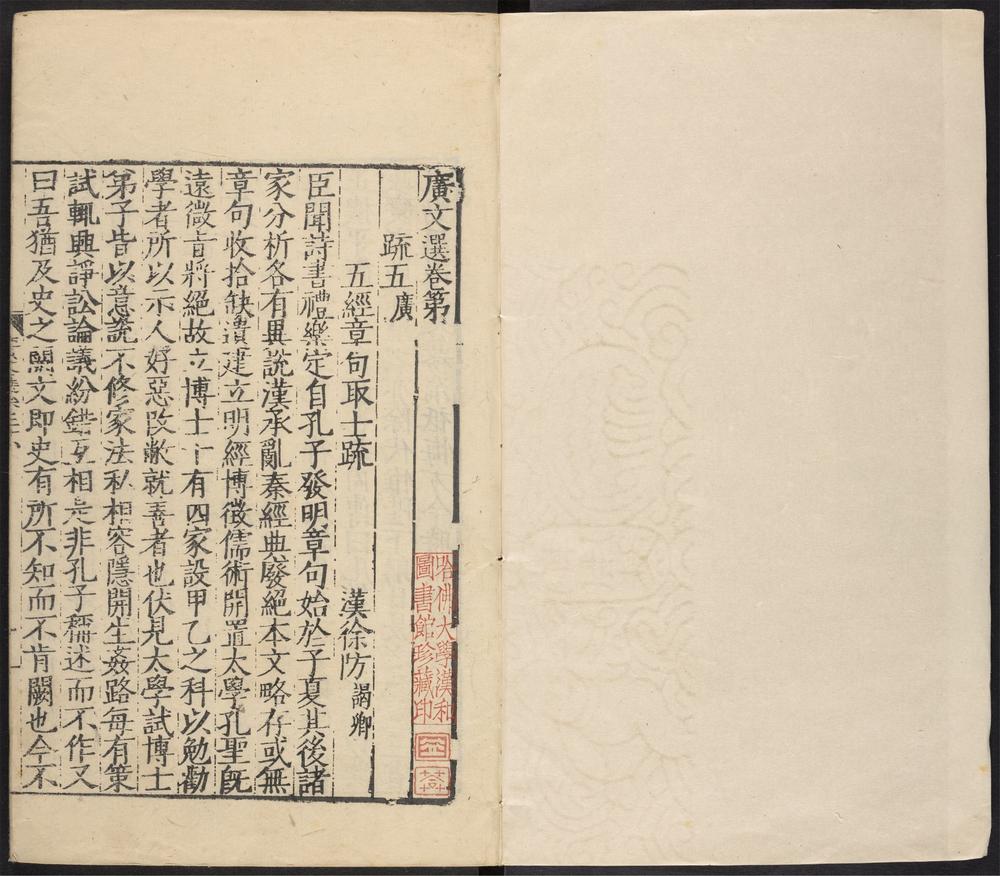 廣文選卷第
疏五 廣
五經章句取士疏 漢徐防 謁卿
臣聞詩書禮樂定自孔子發明章句始於子夏其後諸
家分析各有異說漢承亂秦經典廢絕本文略存或無
章句收拾缺遺建立明經博徵儒術開置太學孔聖旣
遠微旨將絕故立博士十有四家設甲乙之科以勉勸
學者所以示人好惡改敝就善者也伏見太學試博士
弟子皆以意說不修家法私相容隱開生姦路每有策
試輒興諍訟論議紛錯互相是非孔子稱述而不作又
曰吾猶及史之闕文即史有所不知而不肯闕也今不
哈佛大學漢和
圖書館珍藏印